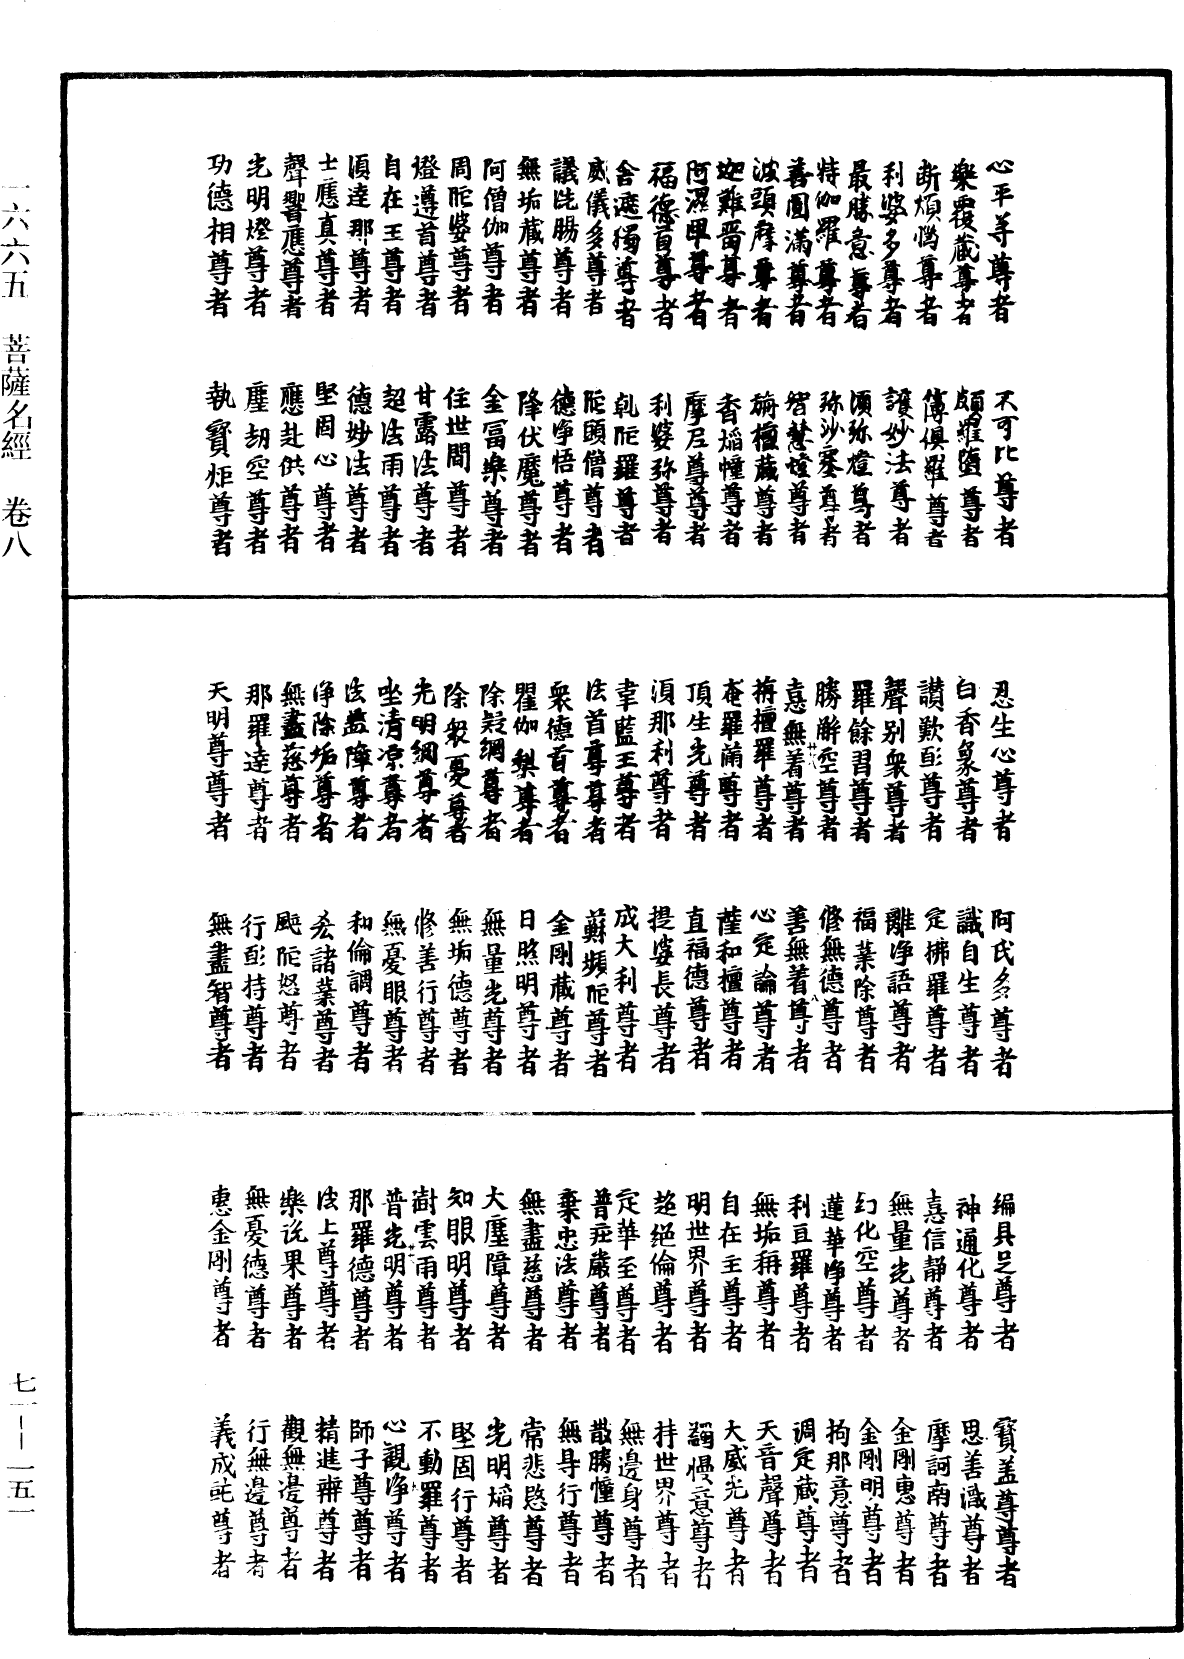 心平等尊者　不可比尊者
樂覆藏尊者　頗羅墮尊者
斷煩惱尊者　薄俱羅尊者
利婆多尊者　護妙法尊者
最勝意尊者　須弥燈尊者
特伽羅尊者　弥沙塞尊者
善圓滿尊者　智慧燈尊者
波頭摩尊者　旃檀藏尊者
迦難留尊者　香焰幢尊者
阿濕卑尊者　摩尼尊尊者
福德首尊者　利婆弥尊者
舍遮獨尊者　乹陀羅尊者
威儀多尊者　陀頭僧尊者
議洗腸尊者　德淨悟尊者
無垢藏尊者　降伏魔尊者
阿僧伽尊者　金冨樂尊者
周陀婆尊者　住世間尊者
燈導首尊者　甘露法尊者
自在王尊者　超法雨尊者
須逹那尊者　德妙法尊者
士應真尊者　堅固心尊者
聲響應尊者　應赴供尊者
光明燈尊者　塵劫空尊者
功德相尊者　執寶炬尊者
忍生心尊者　阿氏多尊者
白香象尊者　識自生尊者
讚歎彭尊者　定拂羅尊者
聲别衆尊者　離淨語尊者
羅餘習尊者　福業除尊者
勝解空尊者　修無德尊者
意無着尊者　善無着尊者
栴檀羅尊者　心定論尊者
菴羅滿尊者　薩和檀尊者
頂生光尊者　直福德尊者
須那利尊者　提婆長尊者
韋藍王尊者　成大利尊者
法首尊尊者　蘇頻陀尊者
衆德首尊者　金剛藏尊者
瞿伽梨尊者　日照明尊者
除疑網尊者　無量光尊者
除衆憂尊者　無垢德尊者
光明網尊者　修善行尊者
坐清凉尊者　無憂眼尊者
法蓋障尊者　和倫調尊者
淨除垢尊者　去諸業尊者
無盡慈尊者　颰陀怒尊者
那羅逹尊者　行彭持尊者
天明尊尊者　無盡智尊者
編具足尊者　寶盖尊尊者
神通化尊者　思善識尊者
意信靜尊者　摩訶南尊者
無量光尊者　金剛惠尊者
幻化空尊者　金剛明尊者
蓮華淨尊者　拘那意尊者
利亘羅尊者　调定藏尊者
無垢稱尊者　天音聲尊者
自在主尊者　大威光尊者
明世界尊者　蠲慢意尊者
超絕倫尊者　持世界尊者
定華至尊者　無邊身尊者
普莊嚴尊者　散勝幢尊者
棄忠法尊者　無㝵行尊者
無盡慈尊者　常悲愍尊者
大塵障尊者　光明焰尊者
知眼明尊者　堅固行尊者
澍雲雨尊者　不動羅尊者
普光明尊者　心觀淨尊者
那羅德尊者　師子尊尊者
法上尊尊者　精進辦尊者
樂說果尊者　觀無邊尊者
無憂德尊者　行無邊尊者
惠金剛尊者　義成就尊者
一六六五　菩薩名經　卷八
七一——一五一